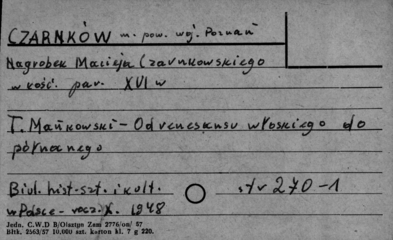 CZARNKÓW m. pow. woj. Poznań
Nagrobek Macieja Czarnkowskiego
w kość. par. XVI w
T. Mańkowski - Od renesansu włoskiego do
północnego
Biul. hist-szt. i kult. str 270-1
w Polsce - rocz. X. 1948
Jedn. C.W.D B/Olsztge Zam 2776/on/ 57
Bltk. 2563/57 10,000 szt. karton kl. 7 g 220.